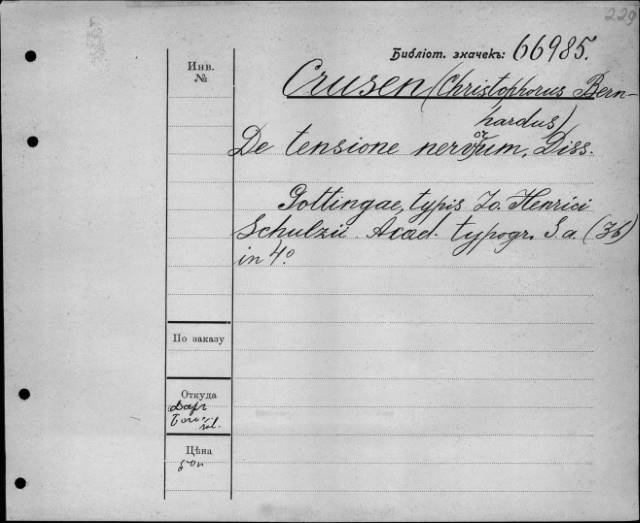 229
Библіот. значекъ: 66985.
Инв.
№
Crusen (Christophorus Bern-
hardus)
De tensione nervorum. Diss.
Gottingae, typis Jo. Henrici
Schulzii Acad. typogr. S. a. (36)
in 4.º
По заказу
Откуда
Даръ
Цѣна